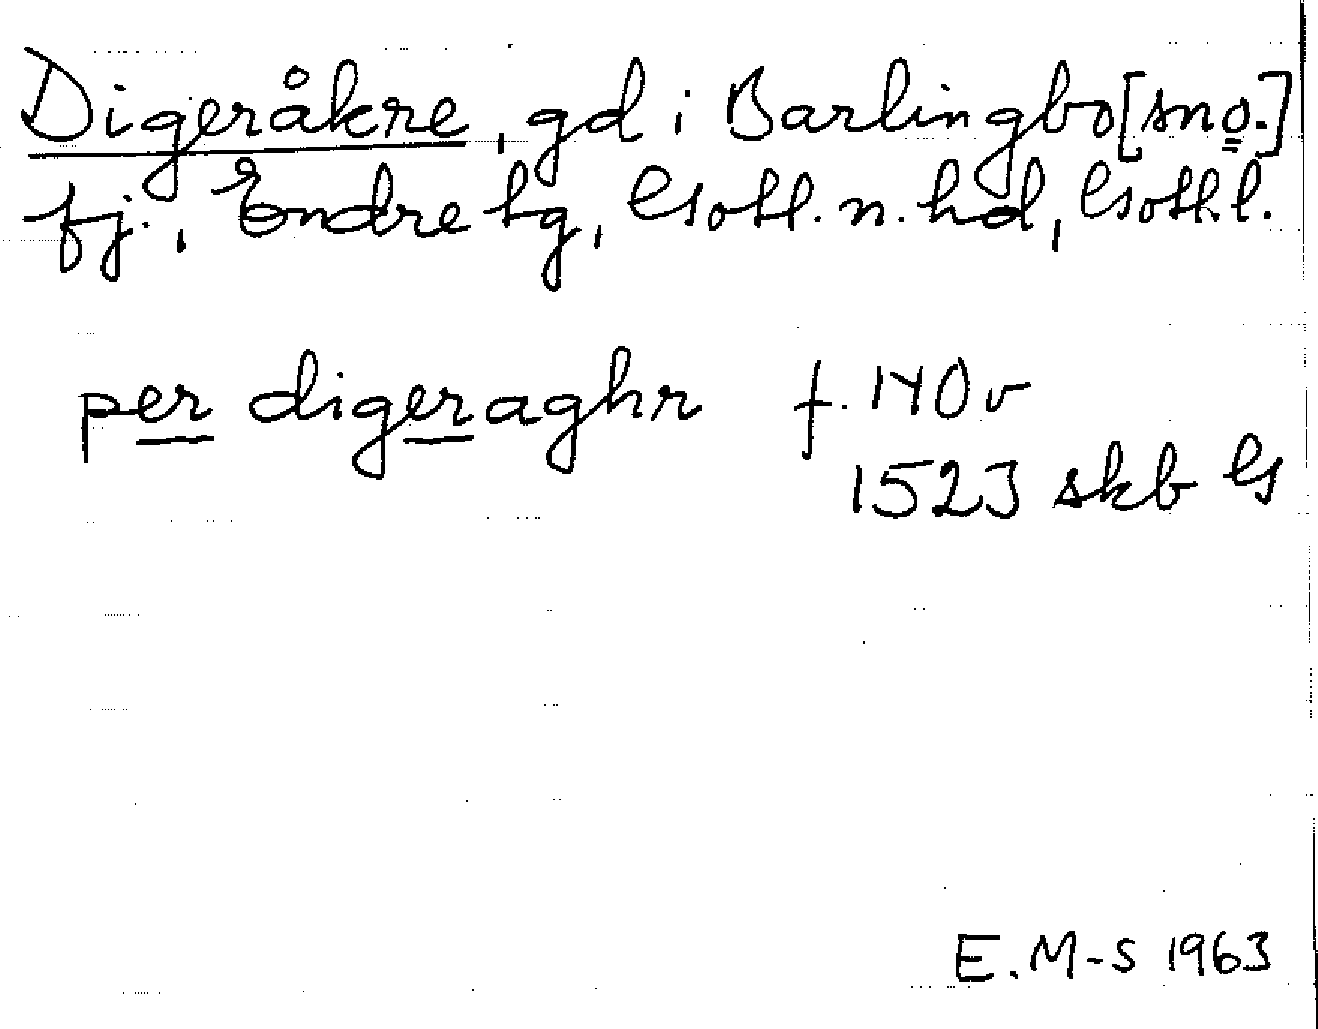 Digeråkre, gd i Barlingbo [sno.]
fj., Endre tg, Gotl. n. hd, Gotl. l.
per digeraghr f. 140 v
1523 skb G
E. M-S 1963